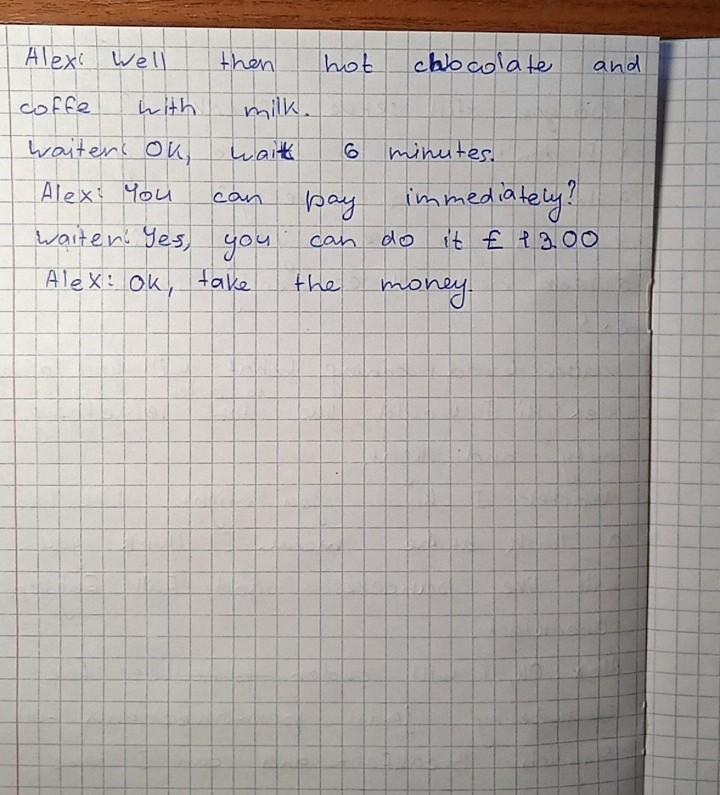 Alex: Well then hot chocolate and
coffe with milk.
Waiter: OK, wait 6 minutes.
Alex: You can pay immediately?
Waiter: Yes, you can do it £
Alex: OK, take the money.